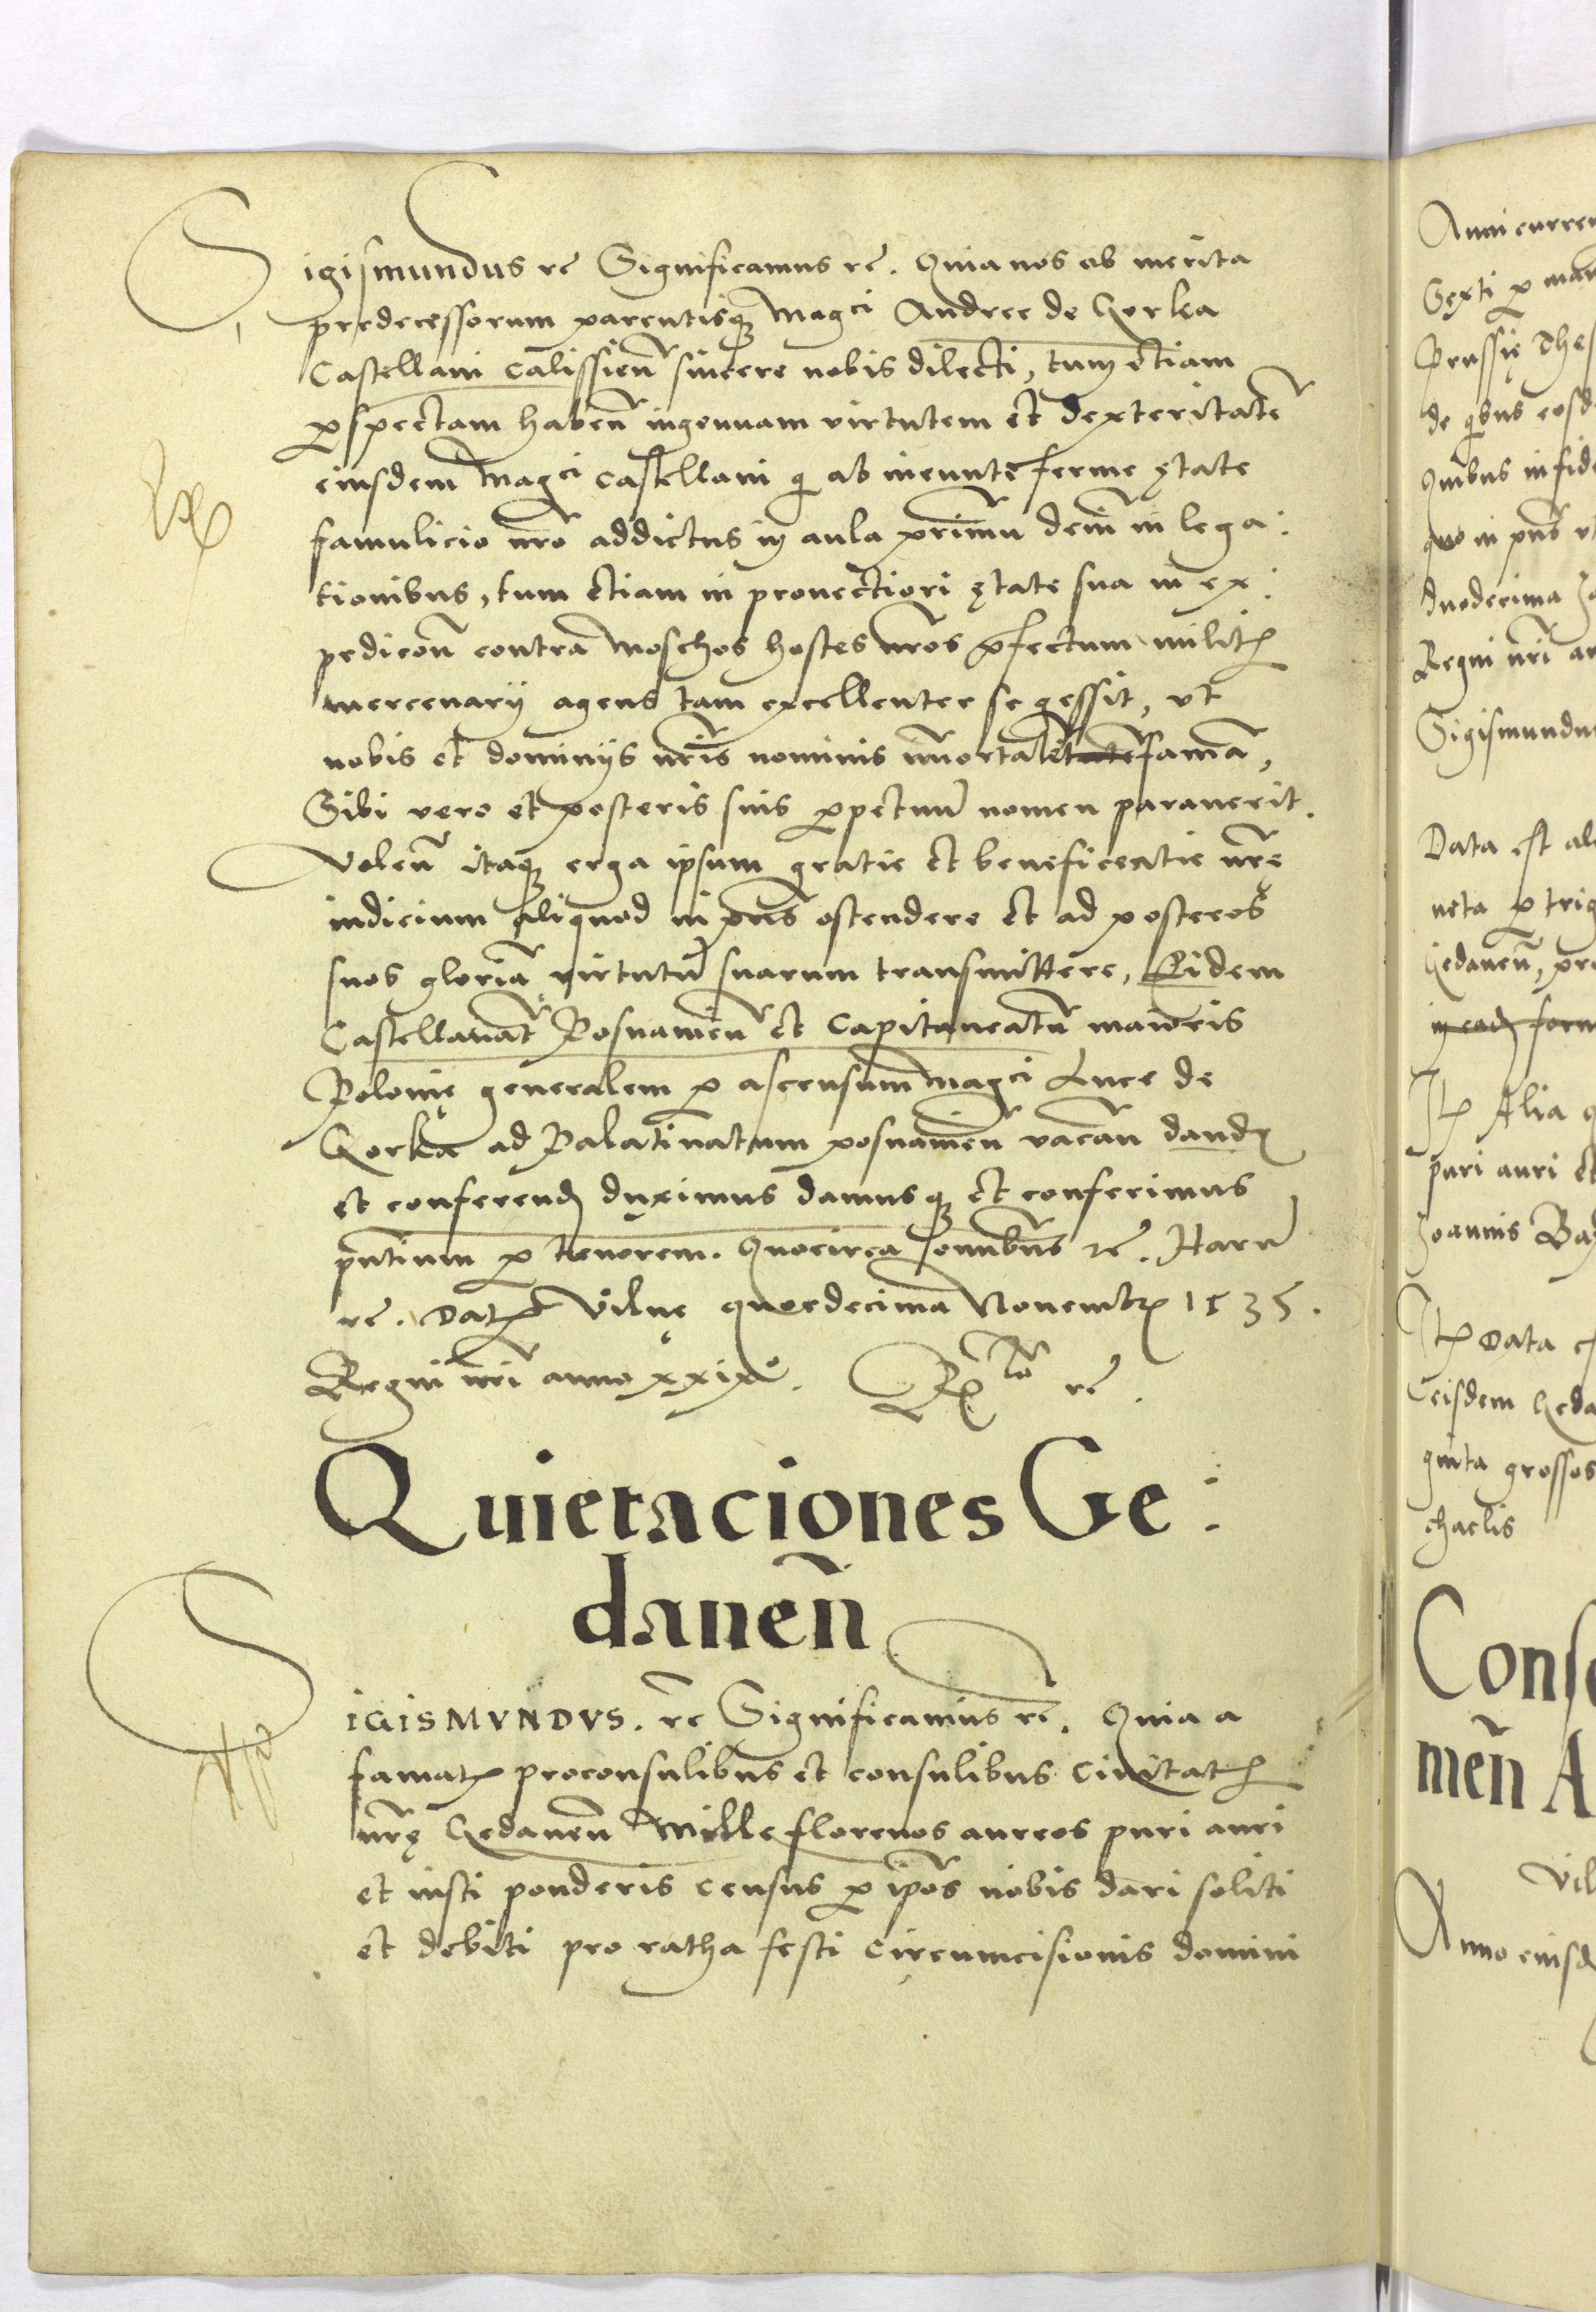 Sigismundus rc̄ Significamus rc̄. Quia nos ob merita
predecessorum parentisqꝫ Magci Andree de Gorka
Castellani Calissieñ sincere nobis dilecti, tum etiam
ꝑspectam habeñ ingenuam virtutem et dexteritatē
eiusdem Magci Castellani qͥ ab ineunte ferme ętate
famulicio nr̄o addictus in aula primū deiñ in lega:
tionibus, tum etiam in prouectiori ętate sua in ex:
pedicoñ contra Moschos hostes nr̄os p̄fectum militꝭ
mercenarÿ agens tam excellenter se gessit, vt
nobis et dominÿs nr̄is nominis im̄ortalem famā,
Sibi vero et posteris suis ꝑpetuū nomen parauerit.
Voleñ itaqꝫ erga ipsum gratie et beneficentie nr̄ę
indicium aliquod in pn̄s ostendere et ad posteros
suos gloriā virtutū suarum transmittere, Eidem
Castellanat̄ Posnanieñ et Capitaneatū maioris
Polonię generalem ꝑ ascensum Magci Luce de
Gorka ad Palatinatum posnanieñ vacañ dandꝭ
et conferendꝭ duximus damusqꝫ et conferimus
pn̄tium ꝑ tenorem. Quocirca om̄ibus rc̄. Harū
rc̄. Datꝭ Vilnę quarta decima Nouembrꝭ 1535.
Regni nr̄i anno xxixº. Rꝭ lo rc̄.
Quietaciones Ge:
daneñ
SIGISMVNDVS. rc̄ Significamus rc̄. Quia a
famatꝭ proconsulibus et consulibus Ciuitatꝭ
nr̄ę Gedaneñ Mille florenos aureos puri auri
et iusti ponderis census ꝑ ip̄os nobis dari soliti
et debiti pro ratha festi Circumcisionis domini
Anni curren
Sexti ꝑ man
Prussię Thes
de qͥbus eosd
Quibus in fide
quo in pn̄s
duodecima
Regni nr̄i an
Sigismundu
Data est al
neta ꝑ trig
Gedaneñ, pr
in eadꝭ form
Itꝭ Alia q
puri auri et
Joannis Ba
Itꝭ Data es
eisdem Geda
ginta grossos
chaelis
Conse
meñ A
Vil
Anno eiusd